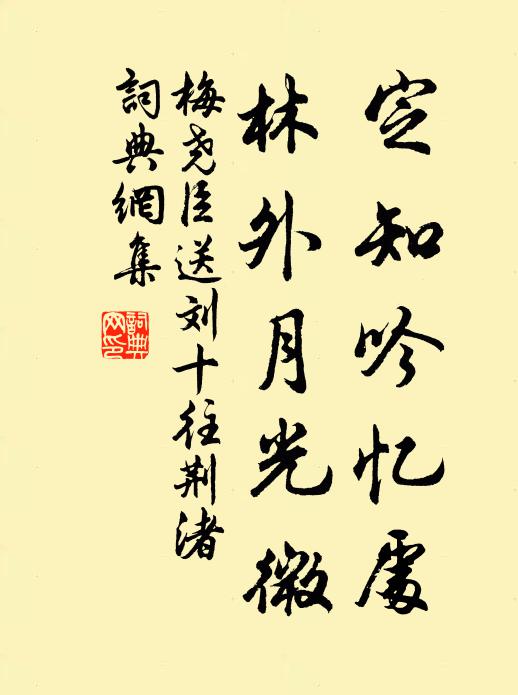 定知吟忆處
林外月光微
梅尧臣送刘十往荆渚
詞典網集
詞典網印